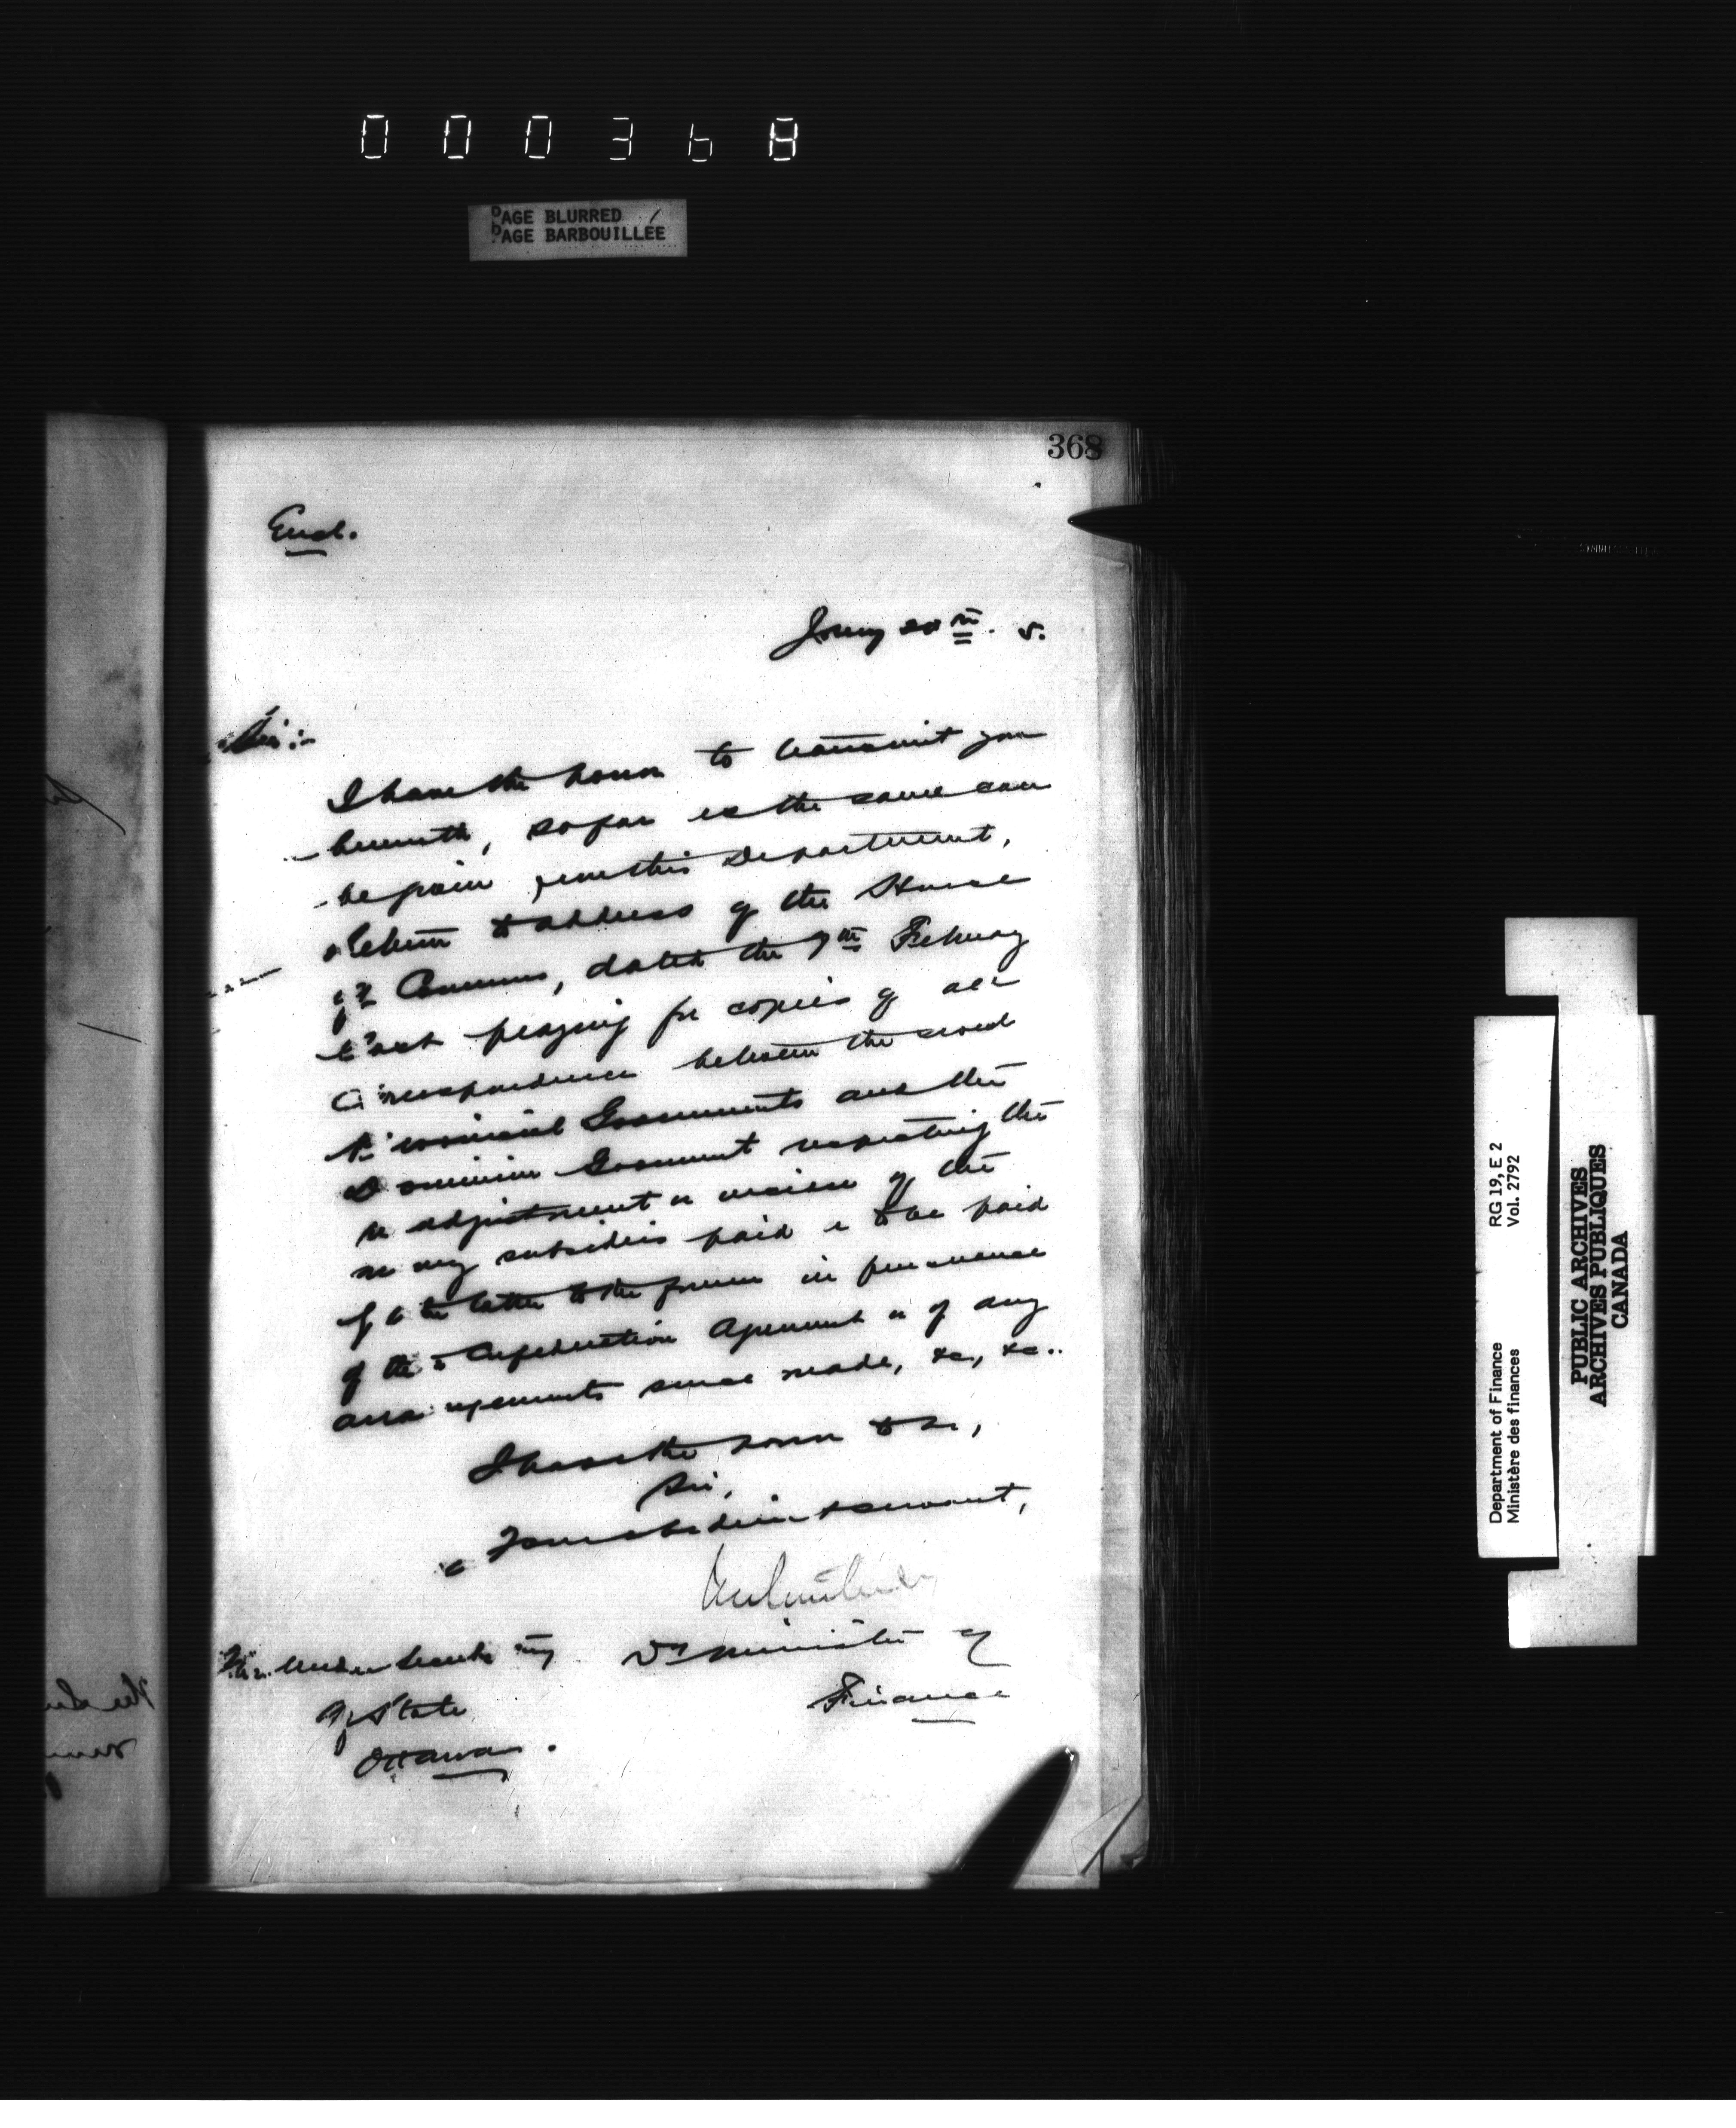 000368
PAGE BLURRED
PAGE BARBOUILLÉE
368
Encl.
Jany 20th. 5.
Sir:-
I have the honor to transmit you
herewith, so far as the same can
be given from this Department,
Return to address of the House
of Commons, dated the 9th Febuary
last praying for copies of all
Correspondence between the several
Provincial Governments and the
Dominion Government respecting the
re adjustment or revision of the
money subsidies paid or to be paid
by the latter to the former in pursuance
of the Confederation Agreement or of any
arrangements since made, &c., &c..
I have the honor to be,
Sir,
Your obedient servant,
Dy Minister of
Finance
The Under Secretary
of State
Ottawa.
Department of Finance RG 19, E 2
Ministère des finances Vol. 2792
PUBLIC ARCHIVES
ARCHIVES PUBLIQUES
CANADA